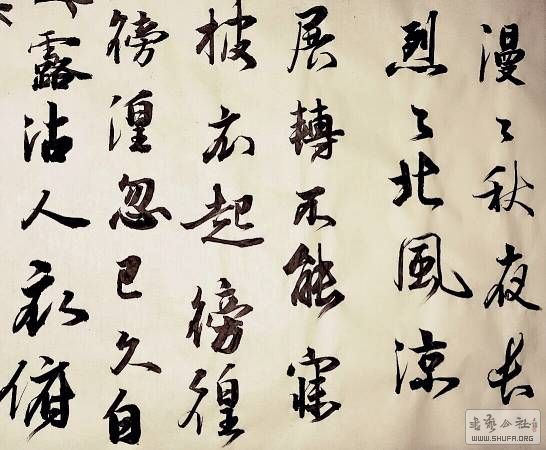 漫々秋夜長
烈々北風涼
展轉不能寐
披衣起徬徨
徬湟忽已久白
露沾人衣俯
书艺公社
WWW.SHUFA.ORG